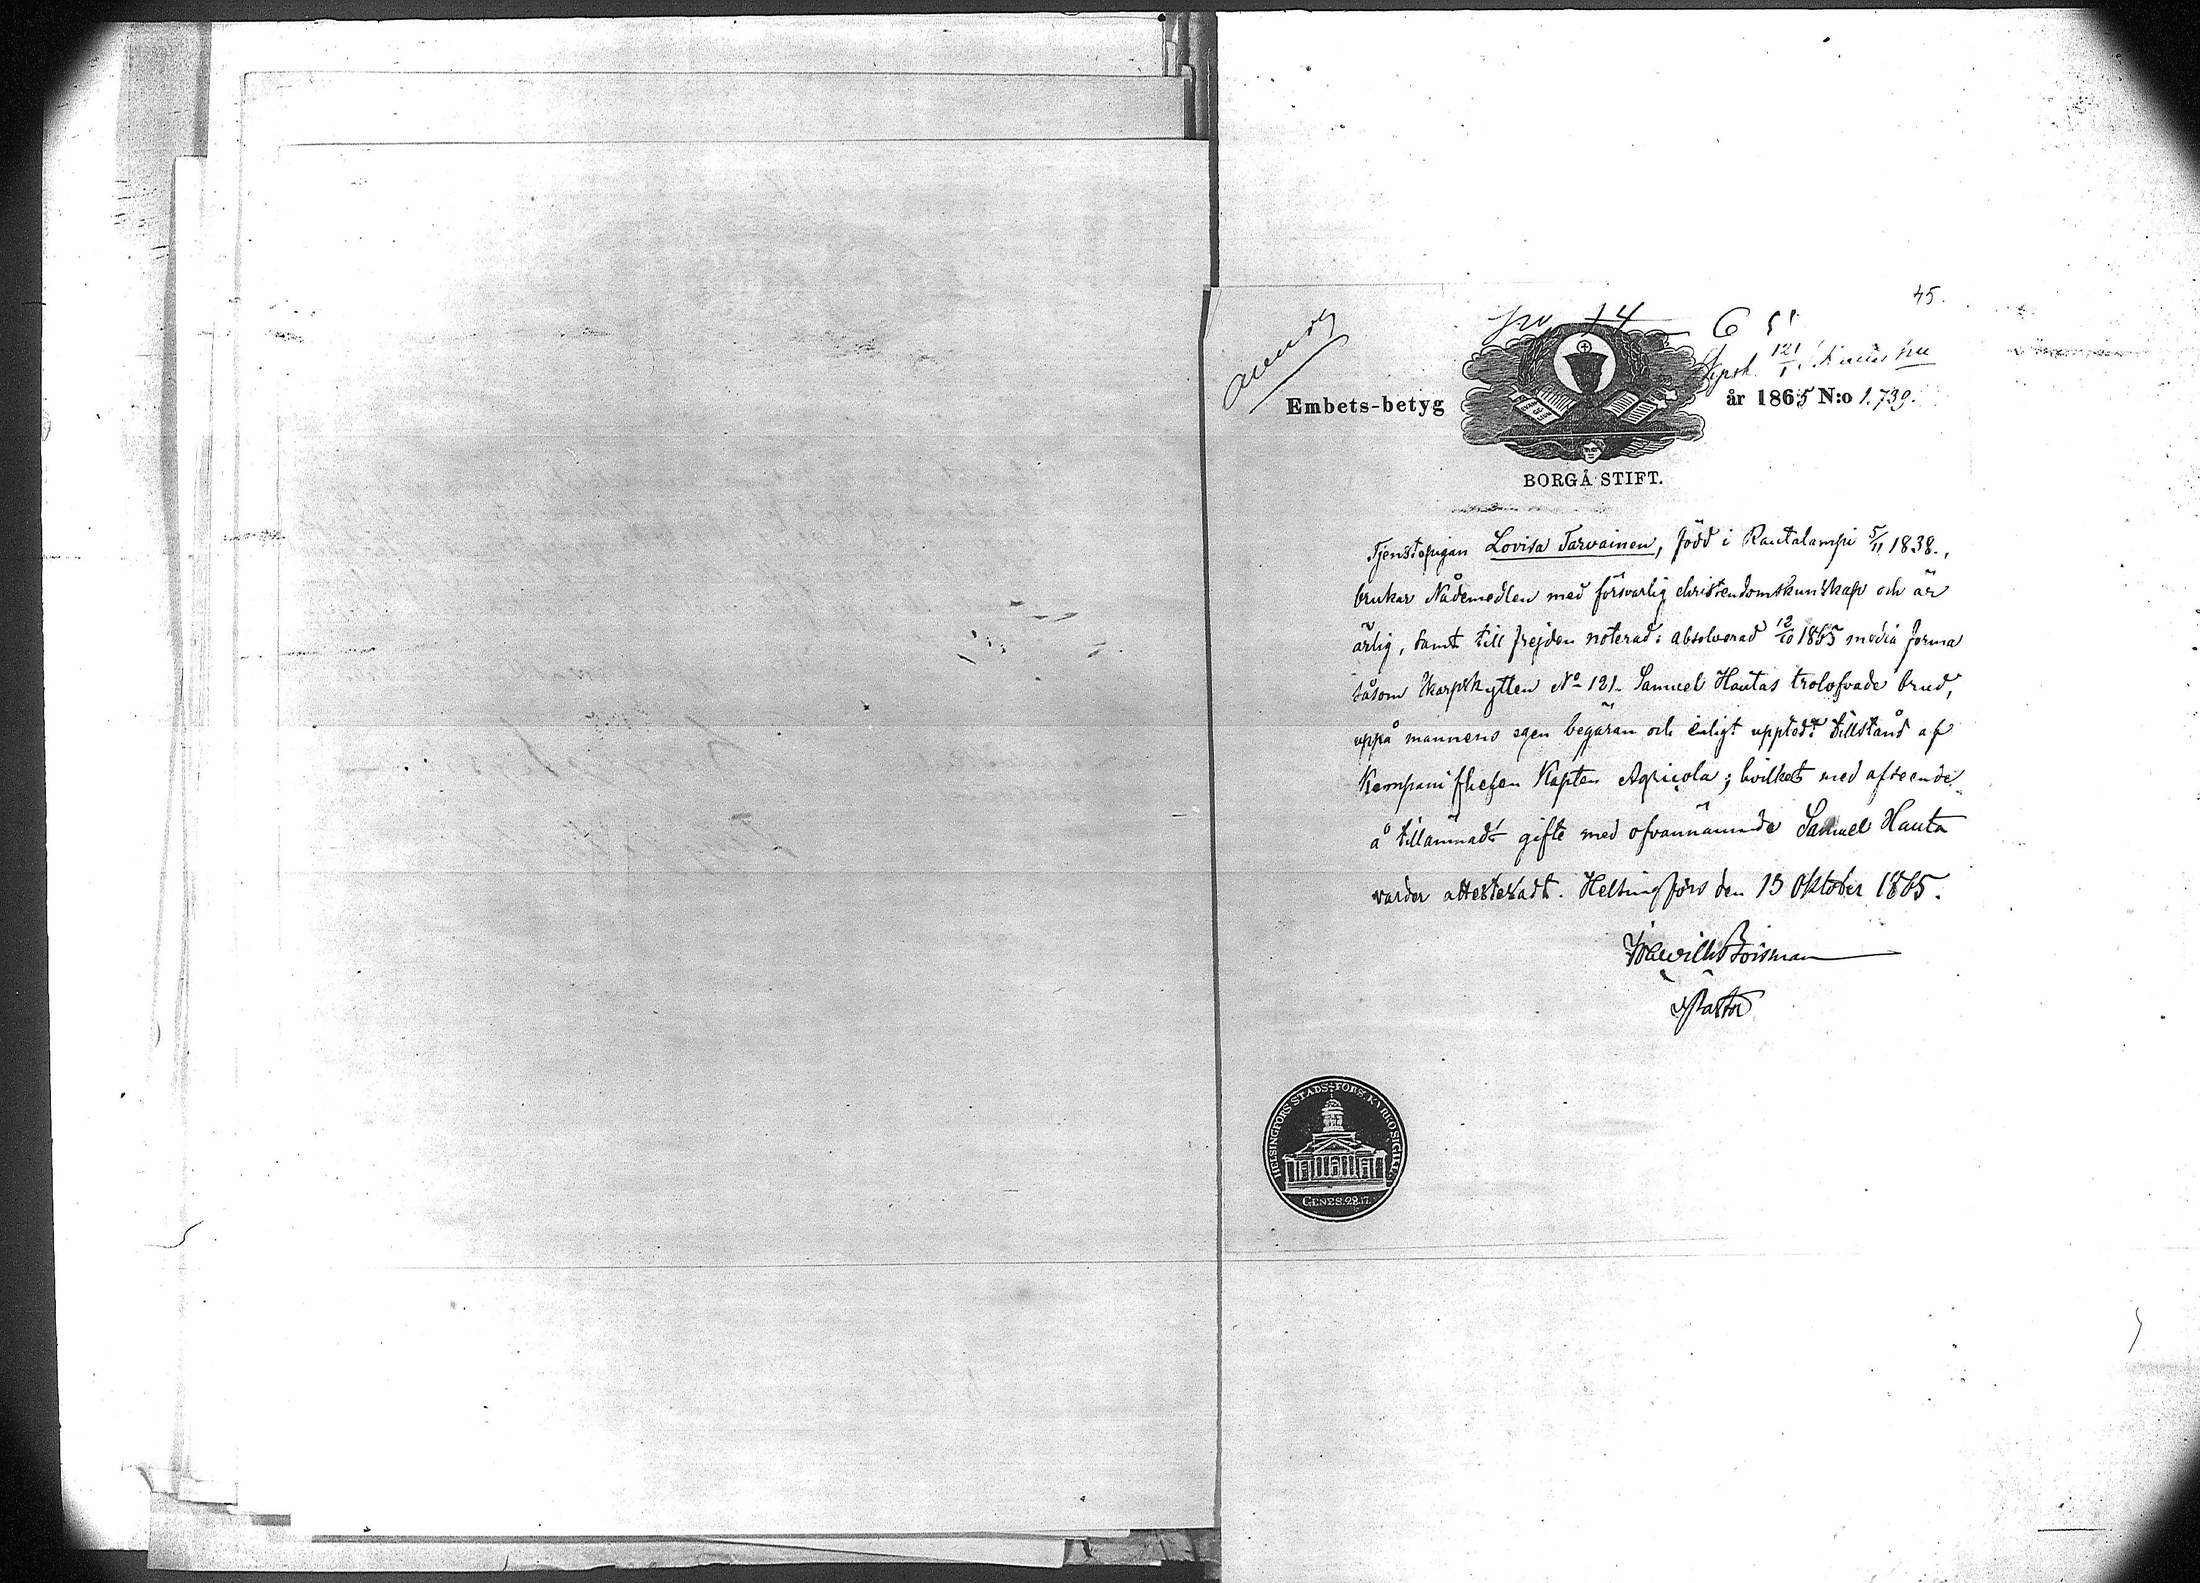 45.
No 14
Embets-betyg
år 1865 N:o 1.739.
BORGÅ STIFT.
Tjenstepigan Lovisa Tarvainen, född i Rautalampi 5/11 1838.,
brukar Nådemedlen med försvarlig christendomskunskap och är
ärlig, samt till frejden noterad: absolverad 12/10 1865 media forma
såsom Skarpskytten No 121. Samuel Hautas trolofvade brud,
uppå mannens egen begäran och enligt uppted.t tillstånd af
Kompani Chefen Kapten Agricola; hvilket med afseende
å tillämnadt gifte med ofvannämnde Samuel Hauta
varder attesteradt. Helsingfors den 13 Oktober 1865.
Boisman
Pastor
HELSINGFORS STADS-FÖRS. KYRKOSIGILL
GENES. 28.17.